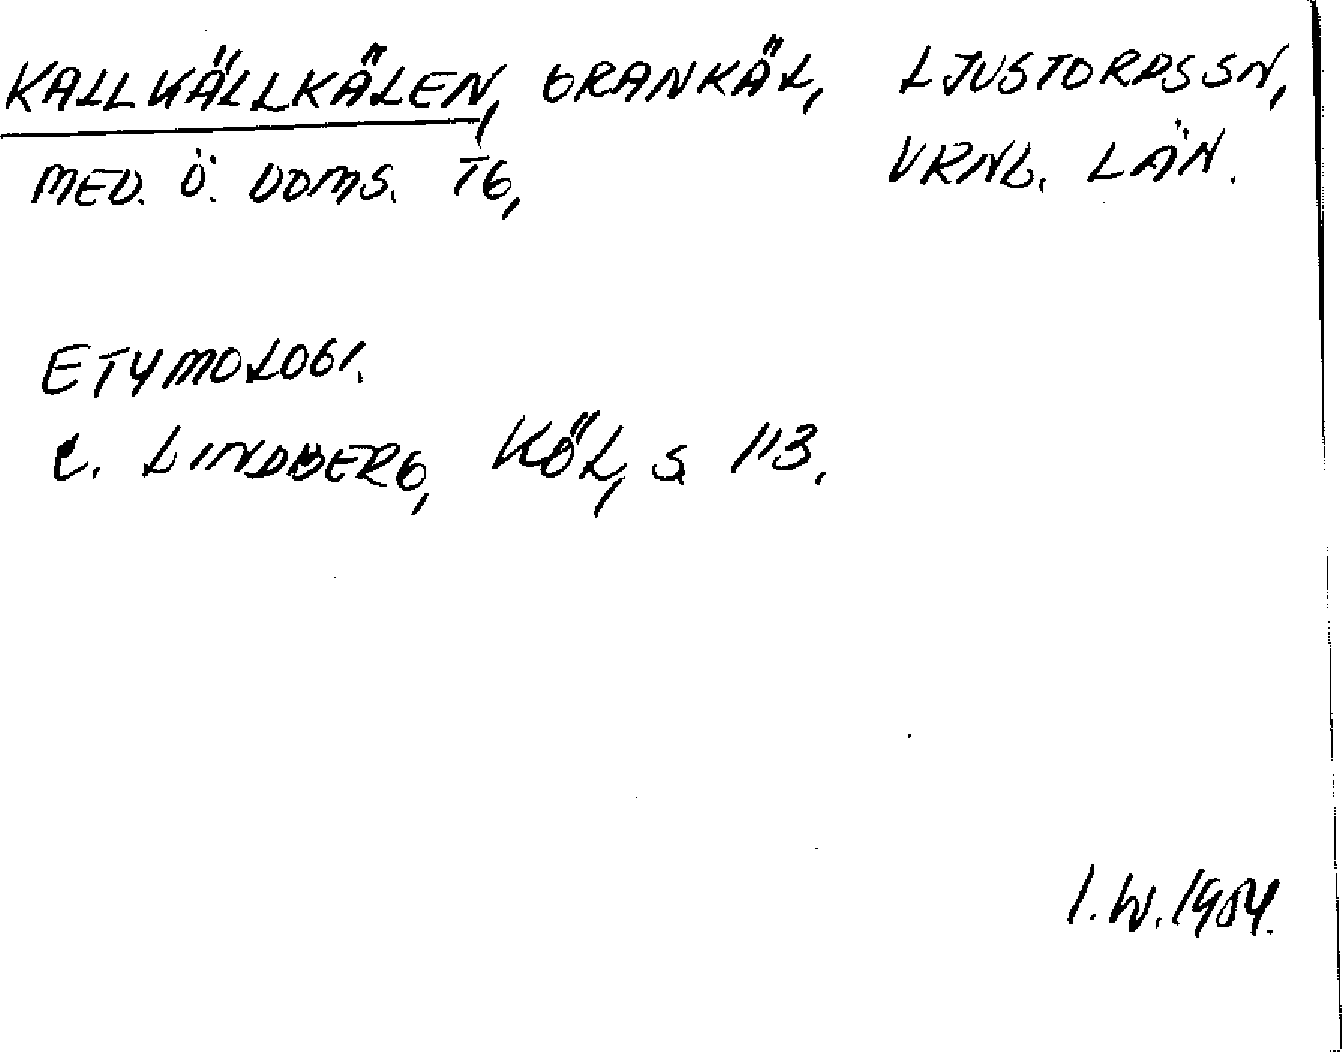 KALLKÄLLKÄLEN, GRANKÄL, LJUSTORPS SN,
MED. Ö. DOMS. TG, VRNL. LÄN.
ETYMOLOGI.
C. LINDBERG, KÖL, S 113.
I.W. 1984.